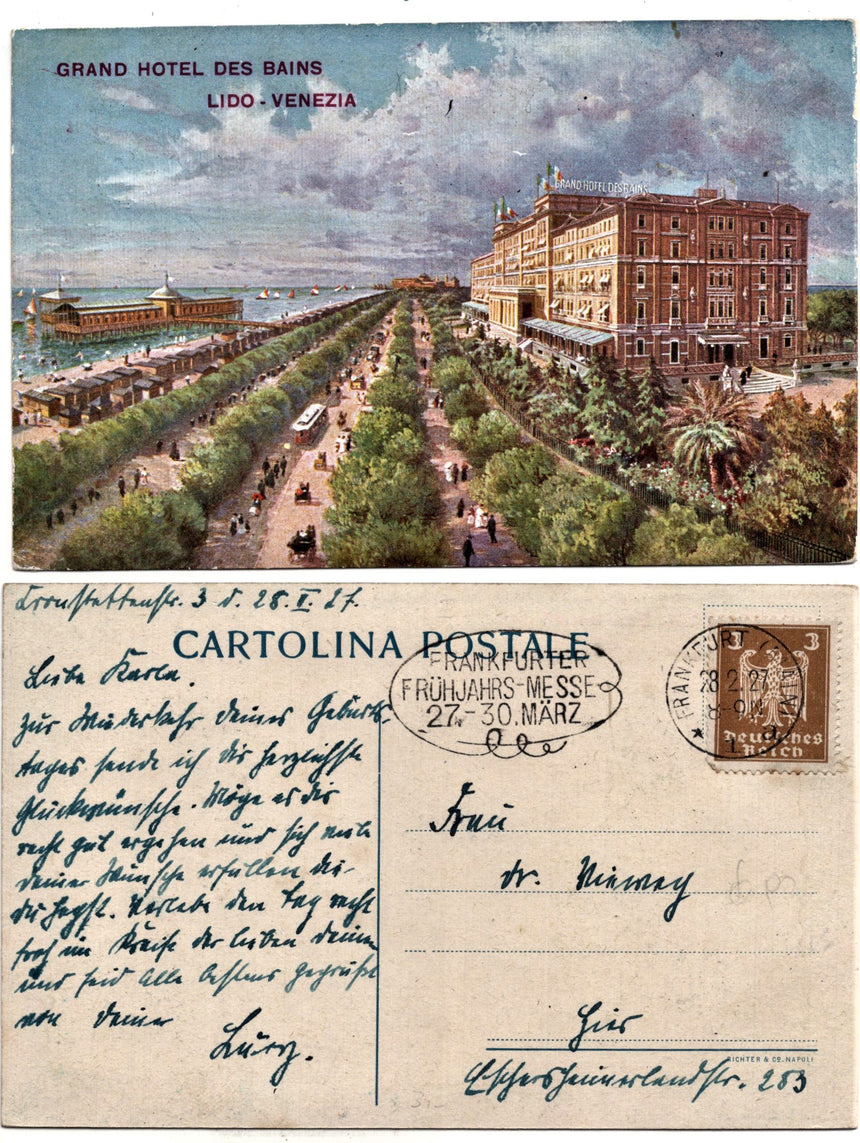 GRAND HOTEL DES BAINS
LIDO - VENEZIA
GRAND HOTEL DES BAINS
Cronstettenstr. 3 d. 28. II. 27.
CARTOLINA POSTALE
FRANKFURTER
FRÜHJAHRS-MESSE
27.-30. MÄRZ
FRANKFURT (MAIN)
28.2.27
8-9 N
* 1 d
3 3
Deutsches
Reich
Liebe Karla.
Zur Wiederkehr deines Geburts-
tages sende ich dir herzlichste
Glückwünsche. Möge es dir
recht gut ergehen und sich viele
deiner Wünsche erfüllen die
du hegst. Verlebe den Tag recht
froh im Kreise der lieben Deinen
und seid alle bestens gegrüßt
von deiner
Frau
Dr. Vieweg
Hier
RICHTER & Cº. NAPOLI
Eschersheimerlandstr. 283